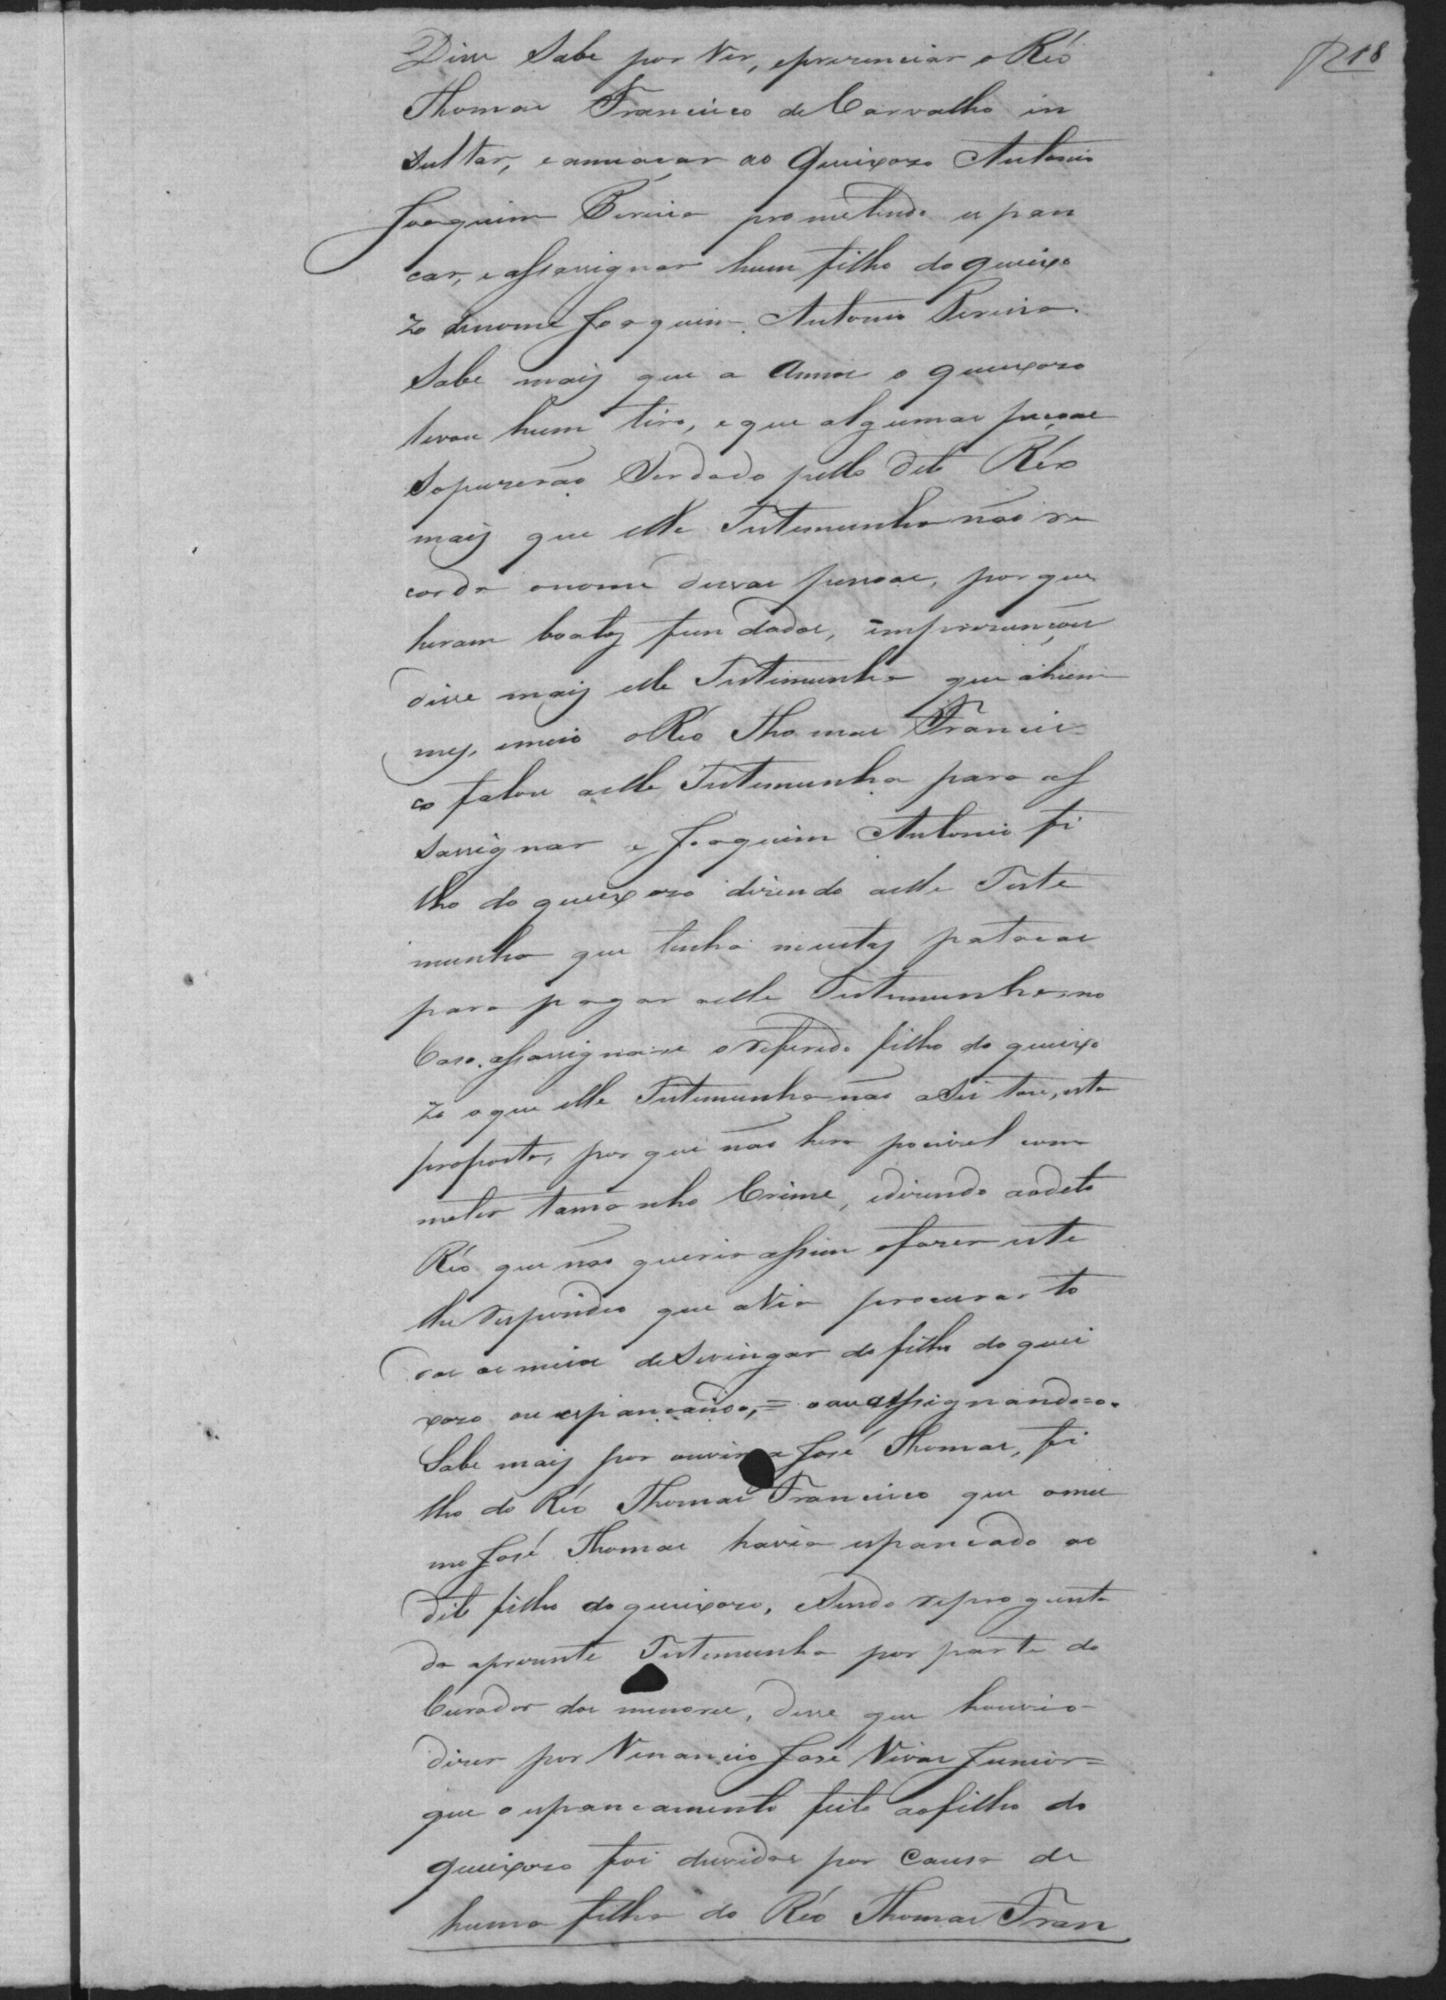 18
Disse Sabe por Ver, eprezenciar o Réo
Thomas Francisco de Carvalho in
sultar, e ameaçar ao Queixozo Antonio
Joaquim Pereira prometendo espan
car, e assassignar hum filho do queixo
zo denome Joaquim Antonio Pereira.
Sabe mais que a o queixozo
levou hum tiro, e que algumas pessoas
Sopuzerão Serdado pello dito Réo
mais que elle Testemunha não re
corda onome dessas pessoas, porque
heram boatos fundados,
disse mais elle Testemunha que áhum
mes, emeio oRéo Thomas Francis
co falou aelle Testemunha para as
sassignar a Joaquim Antonio fi
lho do queixozo dizendo aelle Teste
munha que tinha muitas patacas
para pagar aelle Testemunha, no
Caso, assassignasse o referido filho do queixo
zo o que elle Testemunha não aSeitou, esta
proposta, por que não hera pocivel com
meter tamanho Crime, edizendo aodito
Réo que não queria assim ofazer este
lhe respondeo que avia procurar to
dos os meios deSevingar do filho do quei
xozo ou espancando, = o assassignando=o.
Sabe mais por ouvir a José Thomas, fi
lho do Réo Thomas Francisco que omes
mo José Thomas havia espancado ao
dito filho do queixozo, eSendo reprogunta
da aprezente Testemunha por parte do
Curador dos menores, disse que houvio
dizer por Venancio José Vivas Junior=
que o espancamento feito aofilho do
queixozo foi devidas por Causa de
huma filha do Réo Thomas Fran